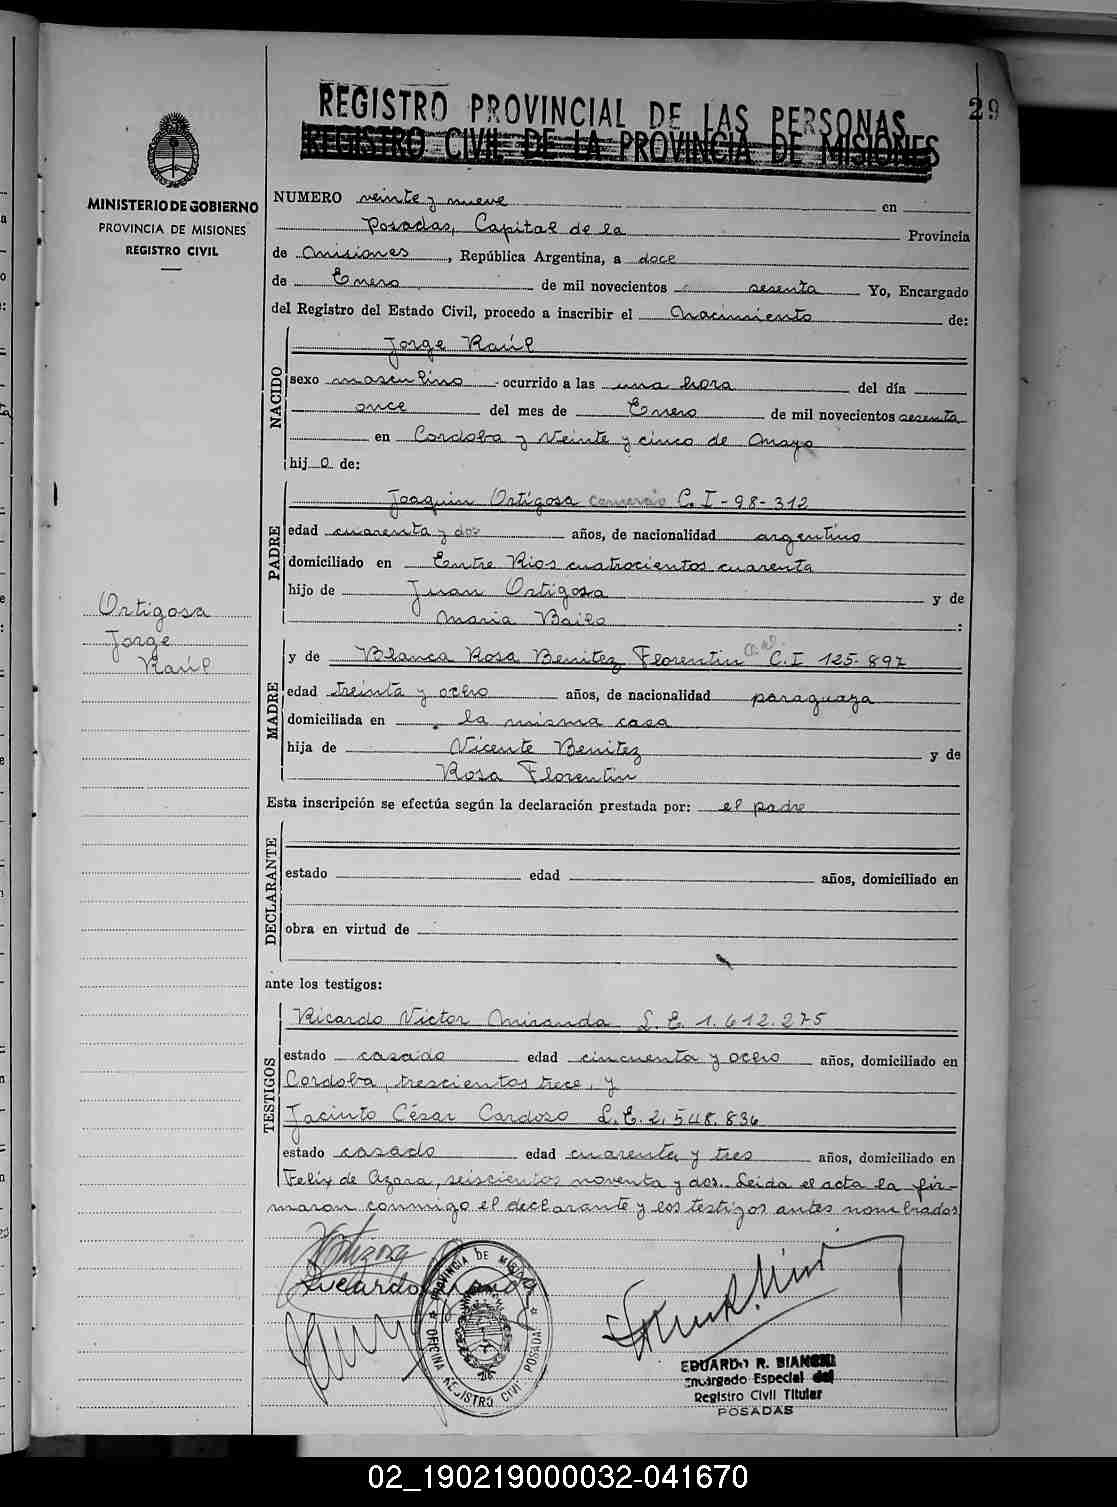 29
REGISTRO PROVINCIAL DE LAS PERSONAS
REGISTRO CIVIL DE LA PROVINCIA DE MISIONES
MINISTERIO DE GOBIERNO
PROVINCIA DE MISIONES
REGISTRO CIVIL
Ortigosa
Jorge
Raúl
NUMERO veinte y nueve en
Posadas, Capital de la Provincia
de Misiones, República Argentina, a doce
de Enero de mil novecientos sesenta Yo, Encargado
del Registro del Estado Civil, procedo a inscribir el Nacimiento de:
NACIDO
Jorge Raúl
sexo masculino ocurrido a las una hora del día
once del mes de Enero de mil novecientos sesenta
en Cordoba y Veinte y cinco de Mayo
hijo de:
PADRE
Joaquin Ortigosa comercio C. I - 98 - 312
edad cuarenta y dos años, de nacionalidad argentino
domiciliado en Entre Rios cuatrocientos cuarenta
hijo de Juan Ortigosa y de
Maria Bailo :
MADRE
y de Blanca Rosa Benitez Florentin C. I 125-897
edad treinta y ocho años, de nacionalidad paraguaya
domiciliada en la misma casa
hija de Vicente Benitez y de
Rosa Florentin
Esta inscripción se efectúa según la declaración prestada por: el padre
DECLARANTE
estado edad años, domiciliado en
obra en virtud de
ante los testigos:
TESTIGOS
Ricardo Victor Miranda L. E. 1.612.275
estado casado edad cincuenta y ocho años, domiciliado en
Cordoba, trescientos trece, y
Jacinto César Cardoso L. E. 2.548.836
estado casado edad cuarenta y tres años, domiciliado en
Felix de Azara, seiscientos noventa y dos. Leida el acta la fir-
maron conmigo el declarante y los testigos antes nombrados
Ortigosa
Ricardo Miranda
PROVINCIA DE MISIONES
OFICINA REGISTRO CIVIL POSADAS
EDUARDO R. BIANCHI
Encargado Especial del
Registro Civil Titular
POSADAS
02_190219000032-041670